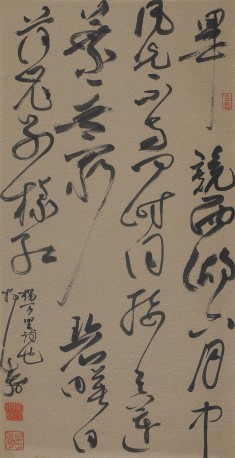 畢競西湖六月中
風光不与四时同接天蓮
葉無窮碧映日
荷花別樣紅
楊万里詩也